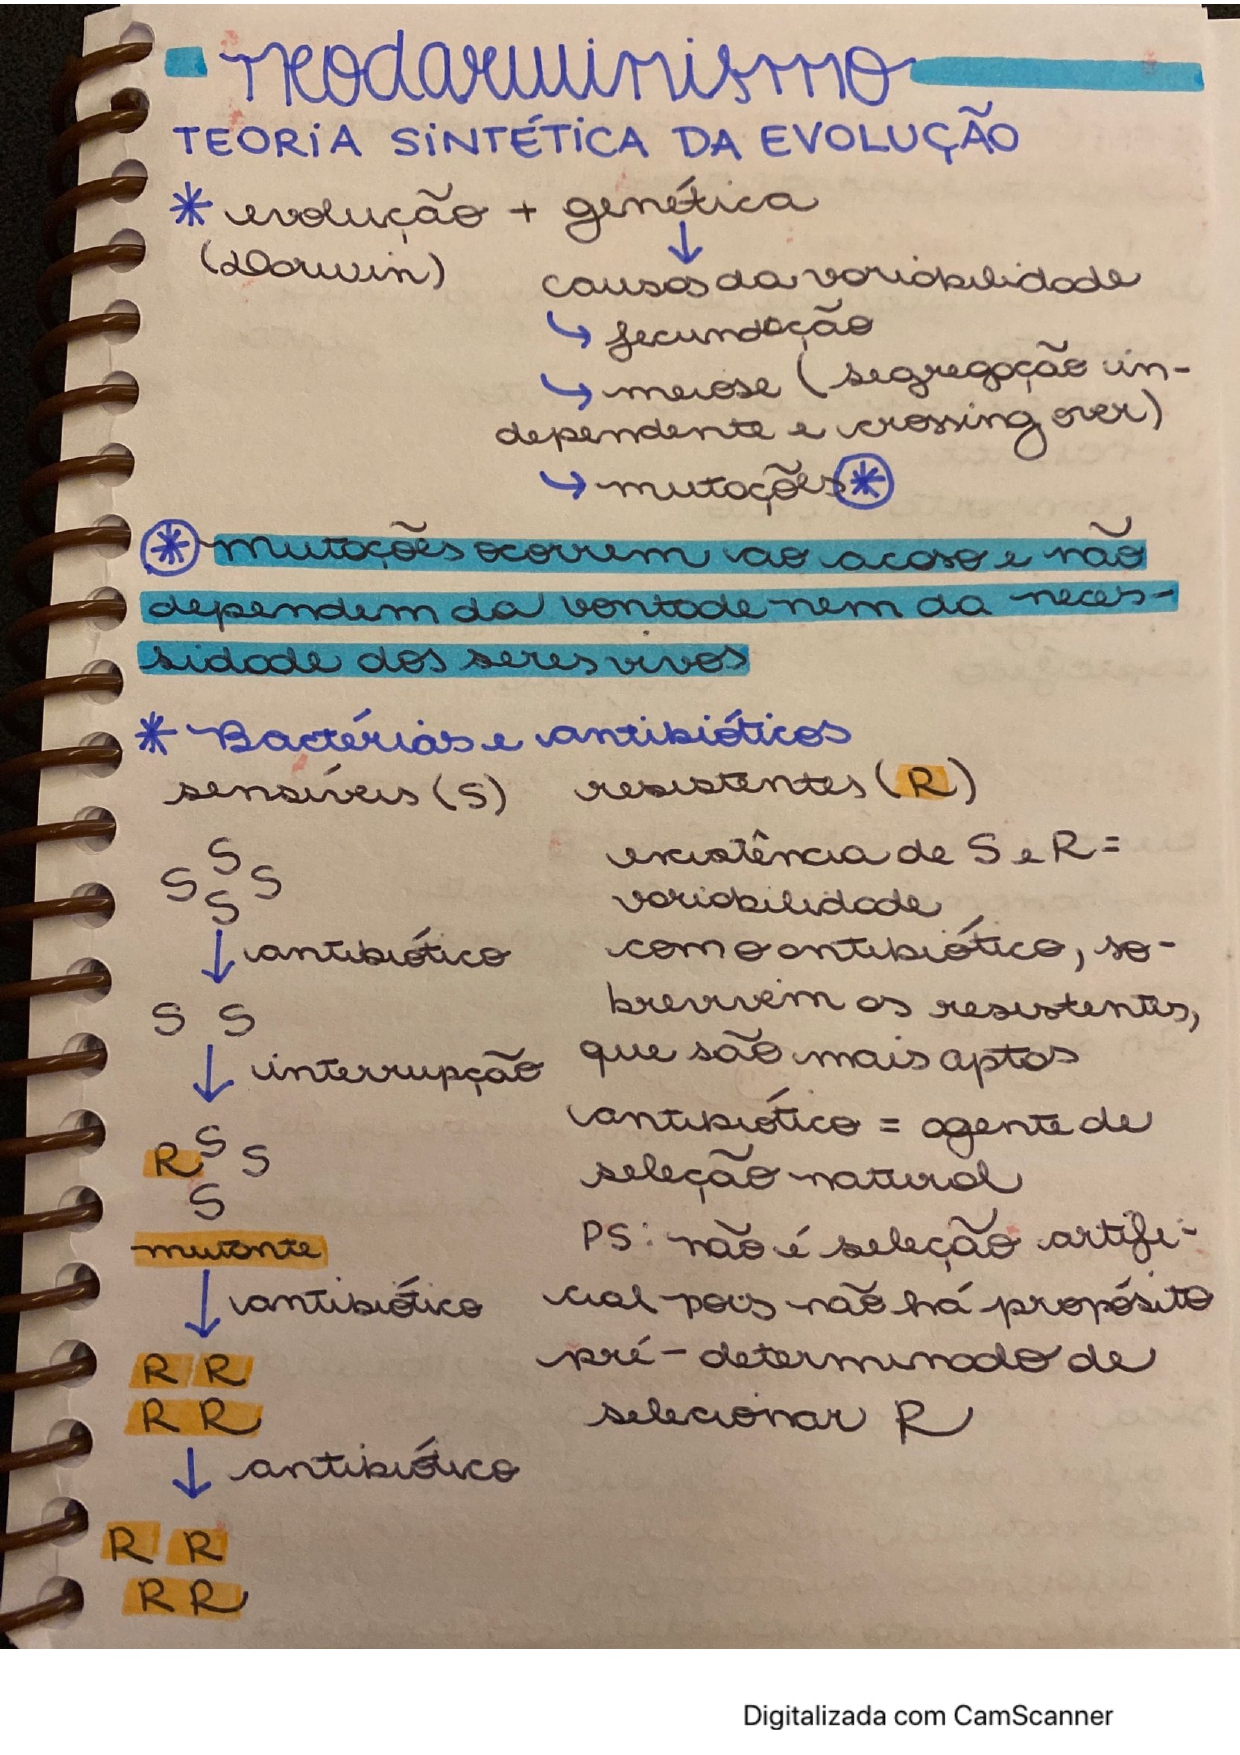 neodarwinismo
TEORIA SINTÉTICA DA EVOLUÇÃO
* evolução + genética
(Darwin)
↓
causas da variabilidade
↳ fecundação
↳ meiose (segregação in-
dependente e crossing over)
↳ mutações *
* mutações ocorrem ao acaso e não
dependem da vontade nem da neces-
sidade dos seres vivos
* Bactérias e antibióticos
sensíveis (S) resistentes (R)
S
S S
S
↓ antibiótico
S S
↓ interrupção
S
R S
S
mutante
↓ antibiótico
R R
R R
↓ antibiótico
R R
R R
existência de S e R =
variabilidade
com o antibiótico, so-
brevivem os resistentes,
que são mais aptos
antibiótico = agente de
seleção natural
PS: não é seleção artifi-
cial pois não há propósito
pré-determinado de
selecionar R
Digitalizada com CamScanner